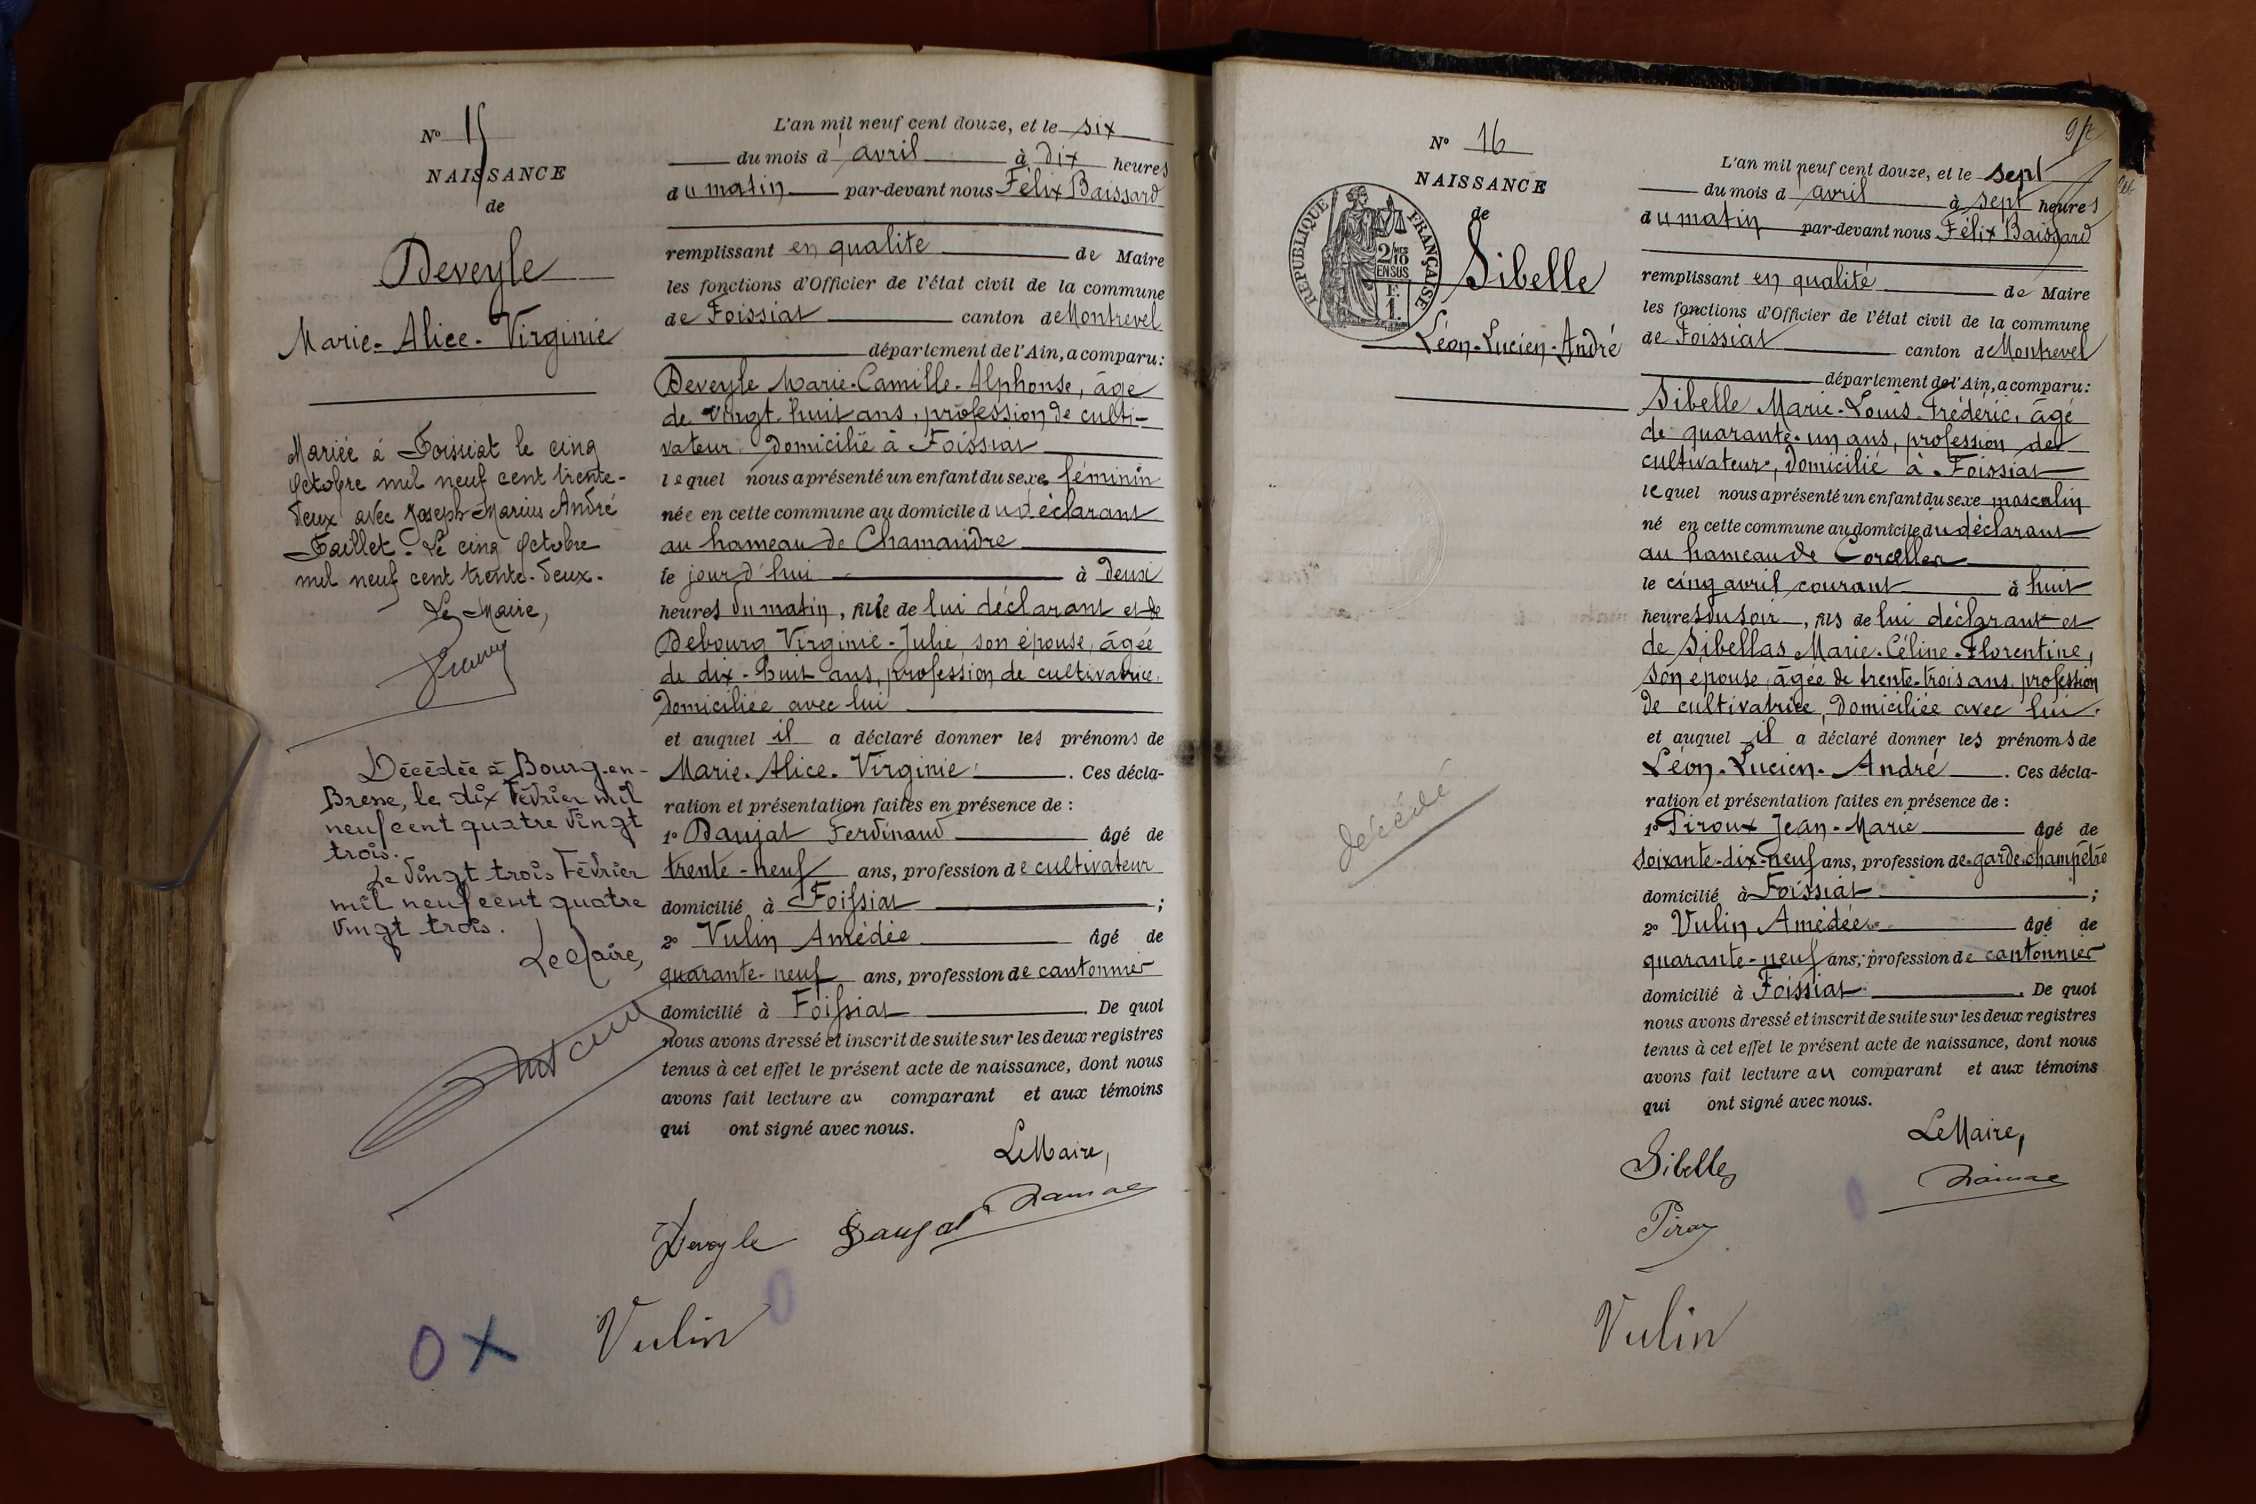 N° 15
NAISSANCE
de
Deveyle
Marie-Alice-Virginie
Mariée à Foissiat le cinq
Octobre mil neuf cent trente-
deux avec Joseph-Marius André
Faillet. Le cinq Octobre
mil neuf cent trente-deux.
Le Maire,
Décédée à Bourg-en-
Bresse, le dix Février mil
neuf cent quatre vingt
trois.
Le vingt trois Février
mil neuf cent quatre
vingt trois.
Le Maire,
L'an mil neuf cent douze, et le six
du mois d'avril à dix heures
du matin par-devant nous Félix Baissard
remplissant en qualité de Maire
les fonctions d'Officier de l'état civil de la commune
de Foissiat canton de Montrevel
département de l'Ain, a comparu:
Deveyle Marie-Camille-Alphonse, âgé
de vingt-huit ans, profession de culti-
vateur domicilié à Foissiat
lequel nous a présenté un enfant du sexe féminin
née en cette commune au domicile du déclarant
au hameau de Chamandre
le jourd'hui à deux
heures du matin, fille de lui déclarant et de
Debourg Virginie-Julie, son épouse, âgée
de dix-huit ans, profession de cultivatrice,
domiciliée avec lui
et auquel il a déclaré donner les prénoms de
Marie-Alice-Virginie. Ces décla-
ration et présentation faites en présence de :
1° Daujat Ferdinand âgé de
trente-neuf ans, profession de cultivateur
domicilié à Foissiat ;
2° Vulin Amédée âgé de
quarante-neuf ans, profession de cantonnier
domicilié à Foissiat. De quoi
nous avons dressé et inscrit de suite sur les deux registres
tenus à cet effet le présent acte de naissance, dont nous
avons fait lecture au comparant et aux témoins
qui ont signé avec nous.
Le Maire,
Deveyle Daujat
Vulin
O X
N° 16
NAISSANCE
de
RÉPUBLIQUE FRANÇAISE
2/10 EN SUS
F.
1.
Sibelle
Léon-Lucien-André
décédé
L'an mil neuf cent douze, et le sept
du mois d'avril à sept heures
du matin par-devant nous Félix Baissard
remplissant en qualité de Maire
les fonctions d'Officier de l'état civil de la commune
de Foissiat canton de Montrevel
département de l'Ain, a comparu:
Sibelle Marie-Louis-Frédéric, âgé
de quarante-un ans, profession de
cultivateur, domicilié à Foissiat
lequel nous a présenté un enfant du sexe masculin
né en cette commune au domicile du déclarant
au hameau de Corcelles
le cinq avril courant à huit
heures du soir, fils de lui déclarant et
de Sibellas Marie-Céline-Florentine,
son épouse, âgée de trente-trois ans, profession
de cultivatrice, domiciliée avec lui.
et auquel il a déclaré donner les prénoms de
Léon-Lucien-André. Ces décla-
ration et présentation faites en présence de :
1° Piroux Jean-Marie âgé de
soixante-dix-neuf ans, profession de garde champêtre
domicilié à Foissiat ;
2° Vulin Amédée âgé de
quarante-neuf ans, profession de cantonnier
domicilié à Foissiat. De quoi
nous avons dressé et inscrit de suite sur les deux registres
tenus à cet effet le présent acte de naissance, dont nous
avons fait lecture au comparant et aux témoins
qui ont signé avec nous.
Le Maire,
Sibelle
Piroux
Vulin